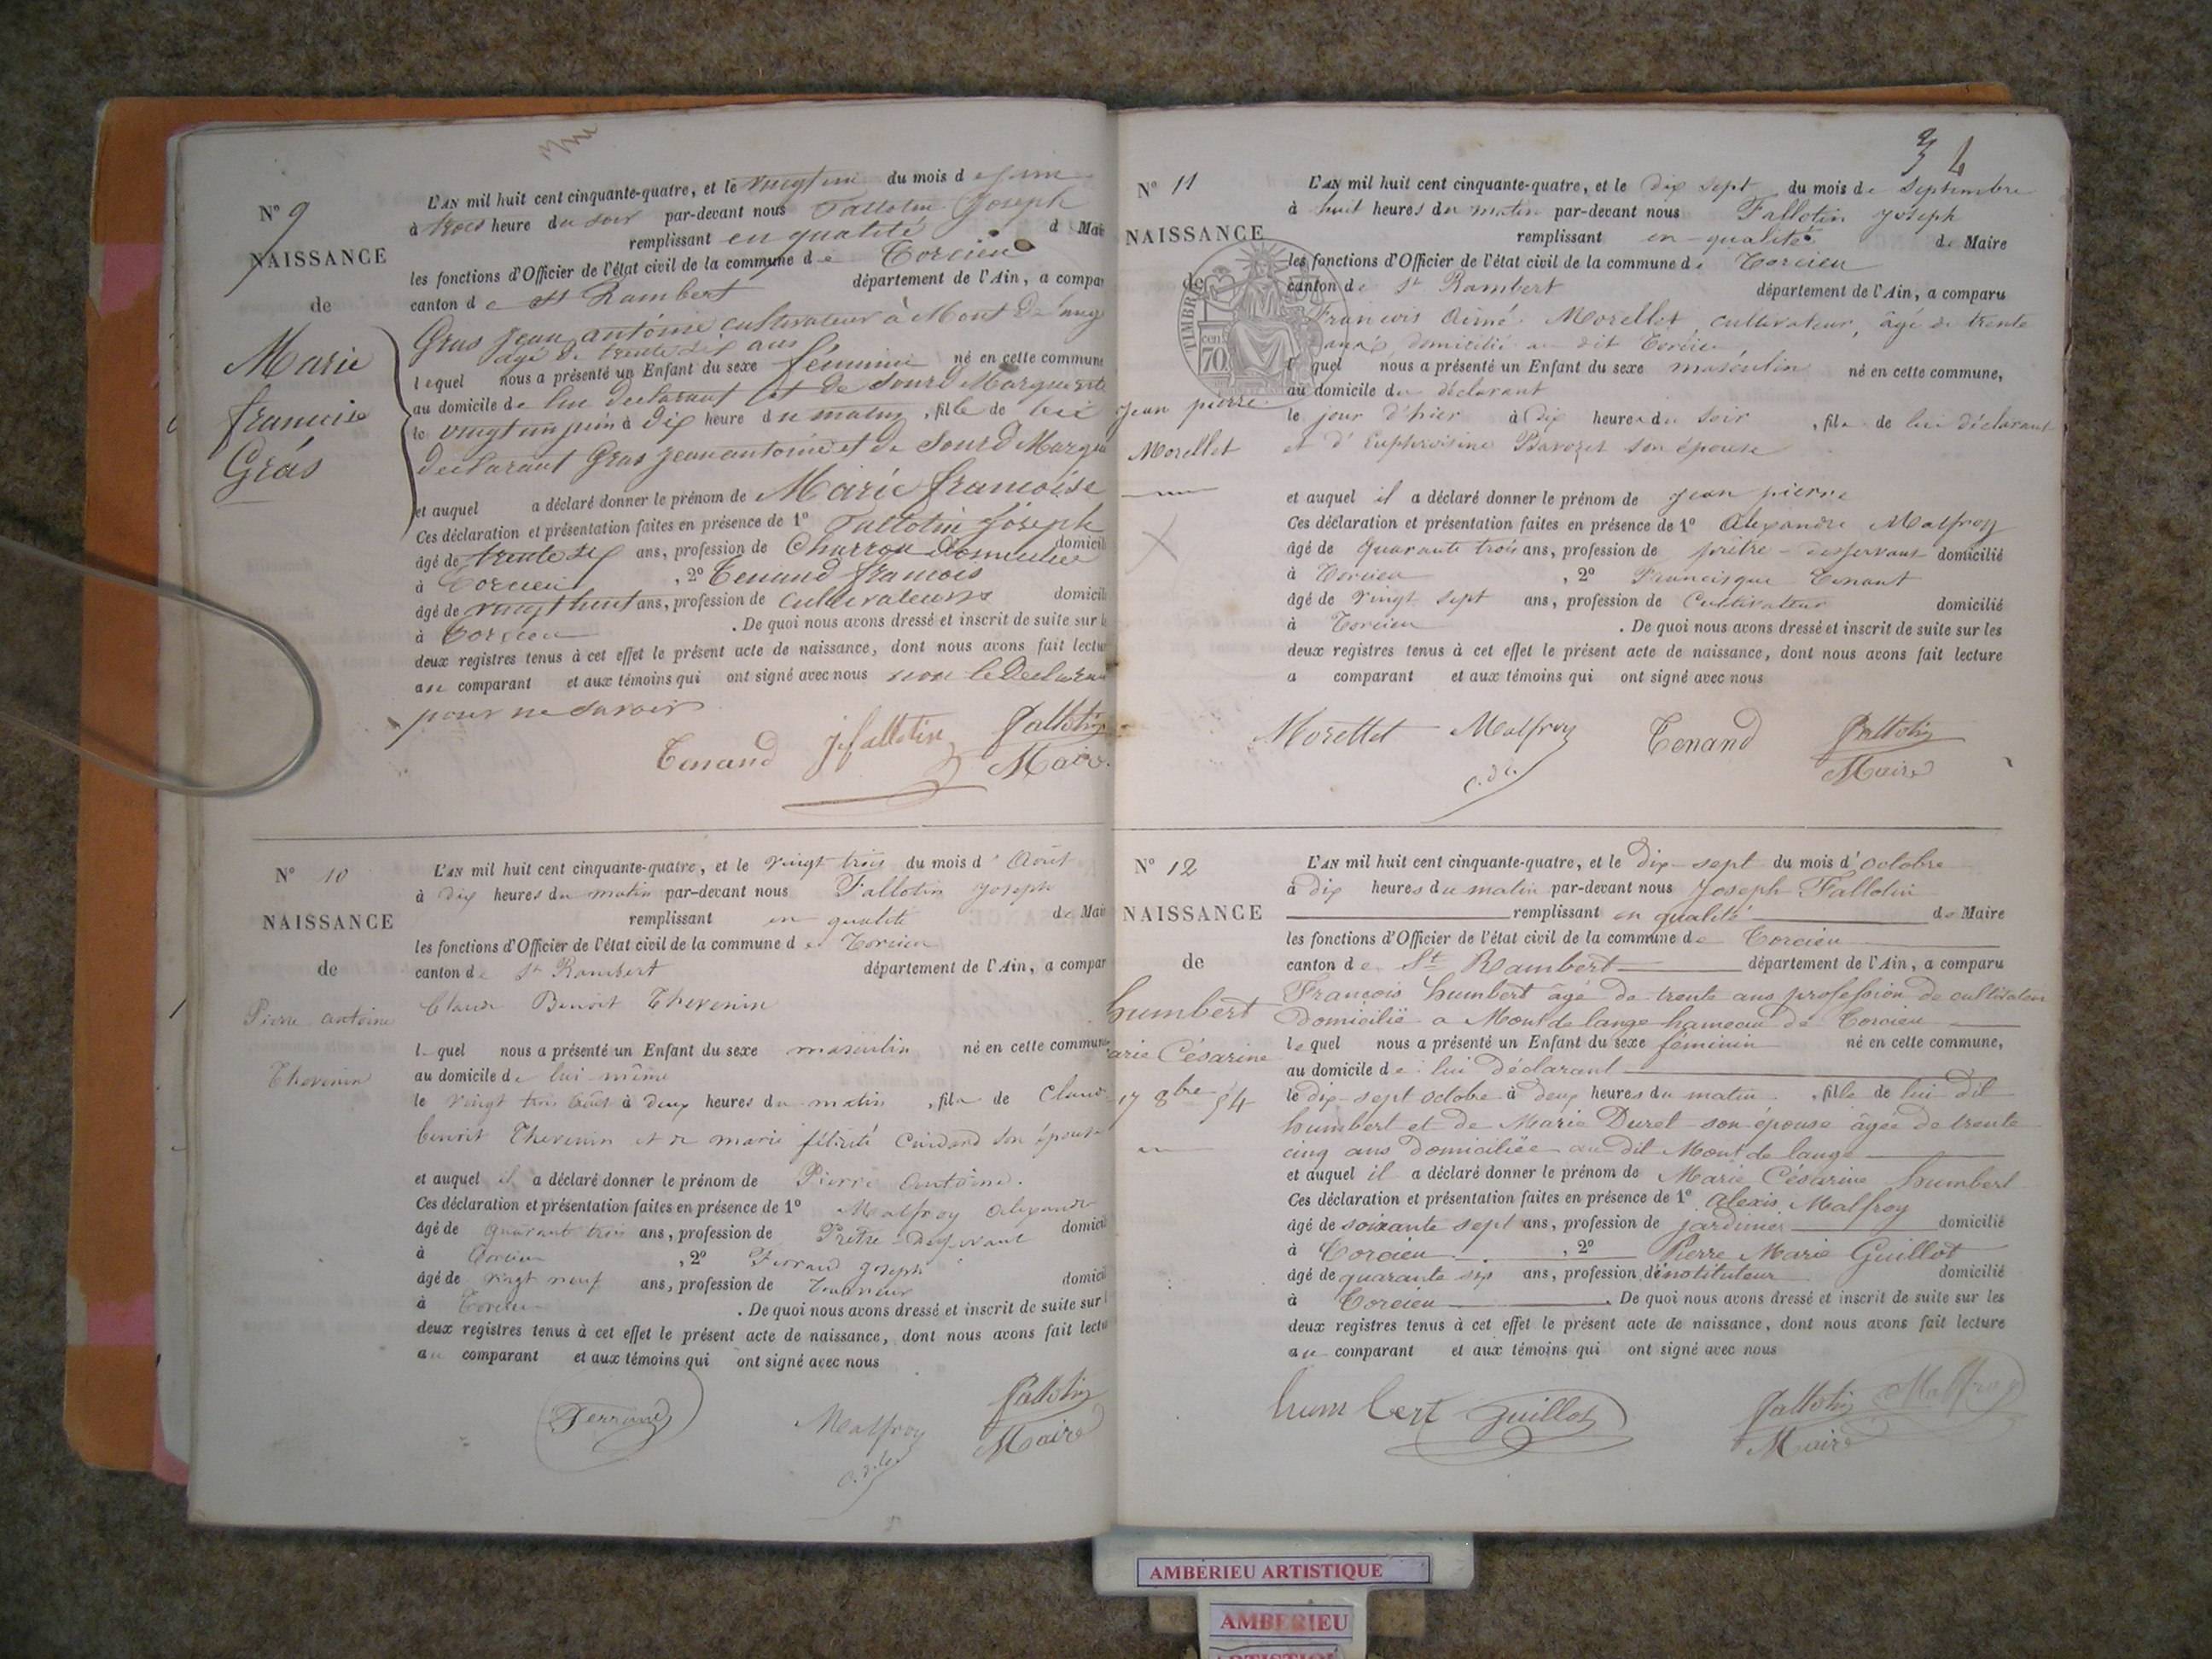 N° 9
NAISSANCE
de
Marie
francoise
Grâs
L'AN mil huit cent cinquante-quatre, et le vingt un du mois de juin
à trois heure du soir par-devant nous Fallotin Joseph
remplissant en qualité d Mai
les fonctions d'Officier de l'état civil de la commune de Torcieu
canton de St Rambert département de l'Ain, a compar
Gras Jean antoine cultivateur à Mont De lange
agé de trente six ans
lequel nous a présenté un Enfant du sexe féminin né en cette commune
au domicile de lui declarant et de Sourd Marguerite
le vingt un juin à Dix heure du matin, fille de lui
declarant Gras jean antoine et de Sourd Margue
et auquel a déclaré donner le prénom de Marie francoise
Ces déclaration et présentation faites en présence de 1° Fallotin Joseph
âgé de trente six ans, profession de Charron Domicilié domicil
à Torcieu, 2° Tenand francois
âgé de vingt huit ans, profession de cultivateurs domicil
à Torcieu. De quoi nous avons dressé et inscrit de suite sur l
deux registres tenus à cet effet le présent acte de naissance, dont nous avons fait lectu
au comparant et aux témoins qui ont signé avec nous non le Declaran
pour ne savoir
Tenand jfallotin Fallotin
Maire
N° 10
NAISSANCE
de
Pierre antoine
Thevenin
L'AN mil huit cent cinquante-quatre, et le vingt trois du mois d'Août
à dix heures du matin par-devant nous Fallotin Joseph
remplissant en qualité de Mai
les fonctions d'Officier de l'état civil de la commune de Torcieu
canton de St Rambert département de l'Ain, a compar
Claude Benoit Thevenin
lequel nous a présenté un Enfant du sexe masculin né en cette commune
au domicile de lui même
le vingt trois Août à deux heures du matin, fils de Claude
benoit Thevenin et de marie félicité son épouse
et auquel il a déclaré donner le prénom de Pierre Antoine.
Ces déclaration et présentation faites en présence de 1° Malfroy Alexandre
âgé de quarante trois ans, profession de Prêtre-Desservant domicil
à Torcieu, 2° Ferrand Joseph
âgé de vingt neuf ans, profession de domicil
à Torcieu. De quoi nous avons dressé et inscrit de suite sur l
deux registres tenus à cet effet le présent acte de naissance, dont nous avons fait lectu
au comparant et aux témoins qui ont signé avec nous
Ferrand Malfroy Fallotin
Maire
3 4
N° 11
NAISSANCE
de
TIMBRE
70 cen
jean pierre
Morellet
L'AN mil huit cent cinquante-quatre, et le dix sept du mois de Septembre
à huit heures du matin par-devant nous Fallotin Joseph
remplissant en qualité de Maire
les fonctions d'Officier de l'état civil de la commune de Torcieu
canton de St Rambert département de l'Ain, a comparu
Francois Aimé Morellet, cultivateur, âgé de trente
ans domicilié au dit Torcieu
lequel nous a présenté un Enfant du sexe masculin né en cette commune,
au domicile du déclarant
le jour d'hier à dix heures du soir, fils de lui déclarant
et d'Euphroisine Bavozet son épouse
et auquel il a déclaré donner le prénom de jean pierre
Ces déclaration et présentation faites en présence de 1° Alexandre Malfroy
âgé de quarante trois ans, profession de prêtre-desservant domicilié
à Torcieu, 2° Francisque Tenant
âgé de vingt sept ans, profession de Cultivateur domicilié
à Torcieu. De quoi nous avons dressé et inscrit de suite sur les
deux registres tenus à cet effet le présent acte de naissance, dont nous avons fait lecture
a comparant et aux témoins qui ont signé avec nous
Morellet Malfroy Tenand Fallotin
Maire
N° 12
NAISSANCE
de
humbert
arie Césarine
17 8bre 54
L'AN mil huit cent cinquante-quatre, et le dix-sept du mois d'octobre
à dix heures du matin par-devant nous Joseph Fallotin
remplissant en qualité de Maire
les fonctions d'Officier de l'état civil de la commune de Torcieu
canton de St Rambert département de l'Ain, a comparu
François humbert âgé de trente ans profession de cultivateur
Domicilié a Mont de lange hameau de Torcieu
lequel nous a présenté un Enfant du sexe féminin né en cette commune,
au domicile de lui déclarant
le dix-sept octobre à deux heures du matin, fille de lui dit
humbert et de Marie Duret son épouse âgée de trente
cinq ans domiciliée au dit Mont de lange
et auquel il a déclaré donner le prénom de Marie Césarine humbert
Ces déclaration et présentation faites en présence de 1° Alexis Malfroy
âgé de soixante sept ans, profession de jardinier domicilié
à Torcieu, 2° Pierre Marie Guillot
âgé de quarante six ans, profession d'instituteur domicilié
à Torcieu. De quoi nous avons dressé et inscrit de suite sur les
deux registres tenus à cet effet le présent acte de naissance, dont nous avons fait lecture
au comparant et aux témoins qui ont signé avec nous
humbert Guillot Fallotin Malfroy
Maire
AMBÉRIEU ARTISTIQUE
AMBERIEU
ARTISTIQUE